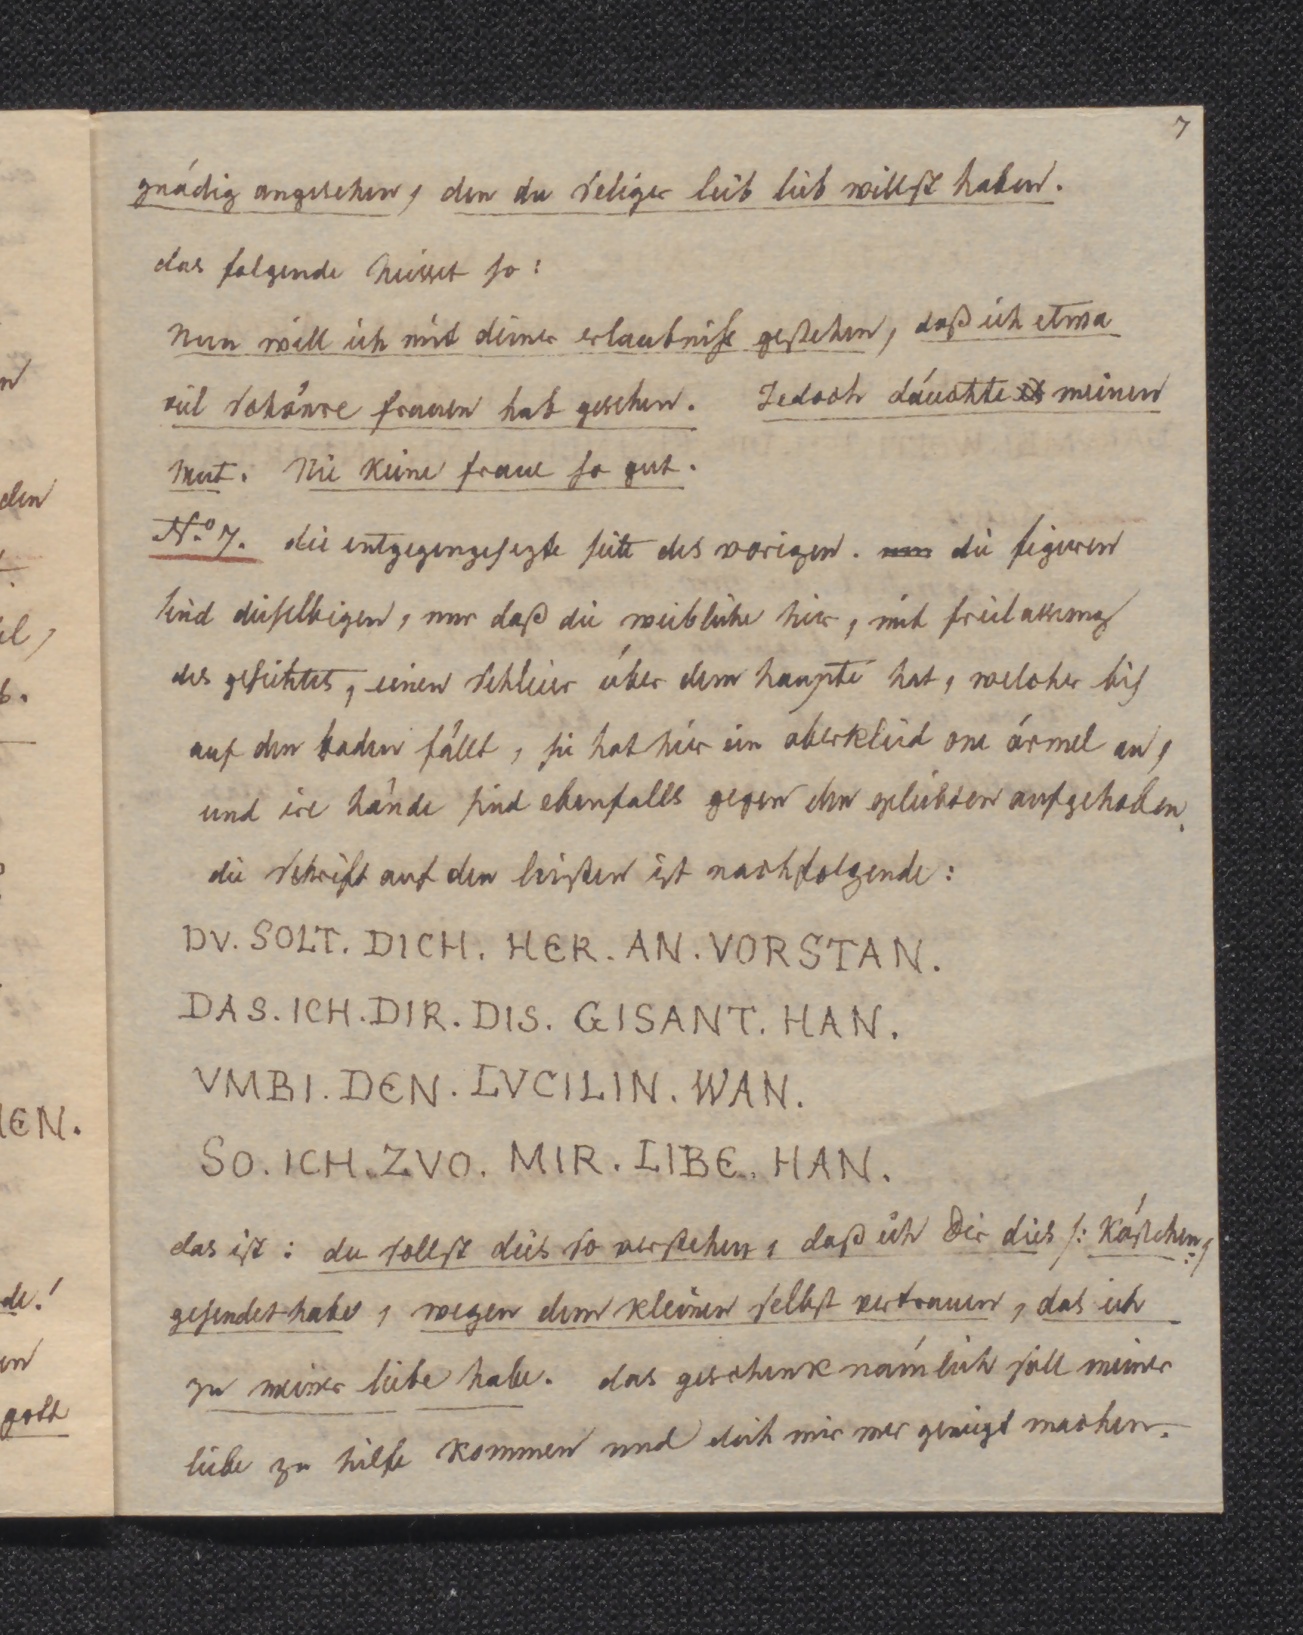 7
gnädig angesehen, den du seliger leib lieb willst haben.
das folgende heisset so:
Nun will ich mit deiner erlaubniss gestehen, daß ich etwa
viel schönre frauen hab gesehen. Jedoch däuchte es meinen
Mut. Nie keine fraue so gut.
N.o 7. die entgegengesezte seite des vorigen. nun die figuren
sind dieselbigen, nur daß die weibliche hier, mit freilassung
des gesichtes, einen schleier über dem haupte hat, welcher bis
auf den boden fällt, sie hat hier ein oberkleid one ärmel an,
und ire hände sind ebenfalls gegen den geliebten aufgehoben.
die schrift auf den leisten ist nachfolgende:
DV. SOLT. DICH. HER. AN. VORSTAN.
DAS. ICH. DIR. DIS. GISANT. HAN.
VMBI. DEN. LVCILIN. WAN.
SO. ICH. ZVO. MIR. LIBE. HAN.
das ist: du sollst dies so verstehen, daß ich Dir dies /: Kästchen :/
gesendet habe, wegen dem kleinen selbst vertrauen, das ich
zu meiner liebe habe. das geschenk nämlich soll meiner
liebe zu hilfe kommen und dich mir mer geneigt machen.
en
den
el,
b.
IEN.
de!
en
gott